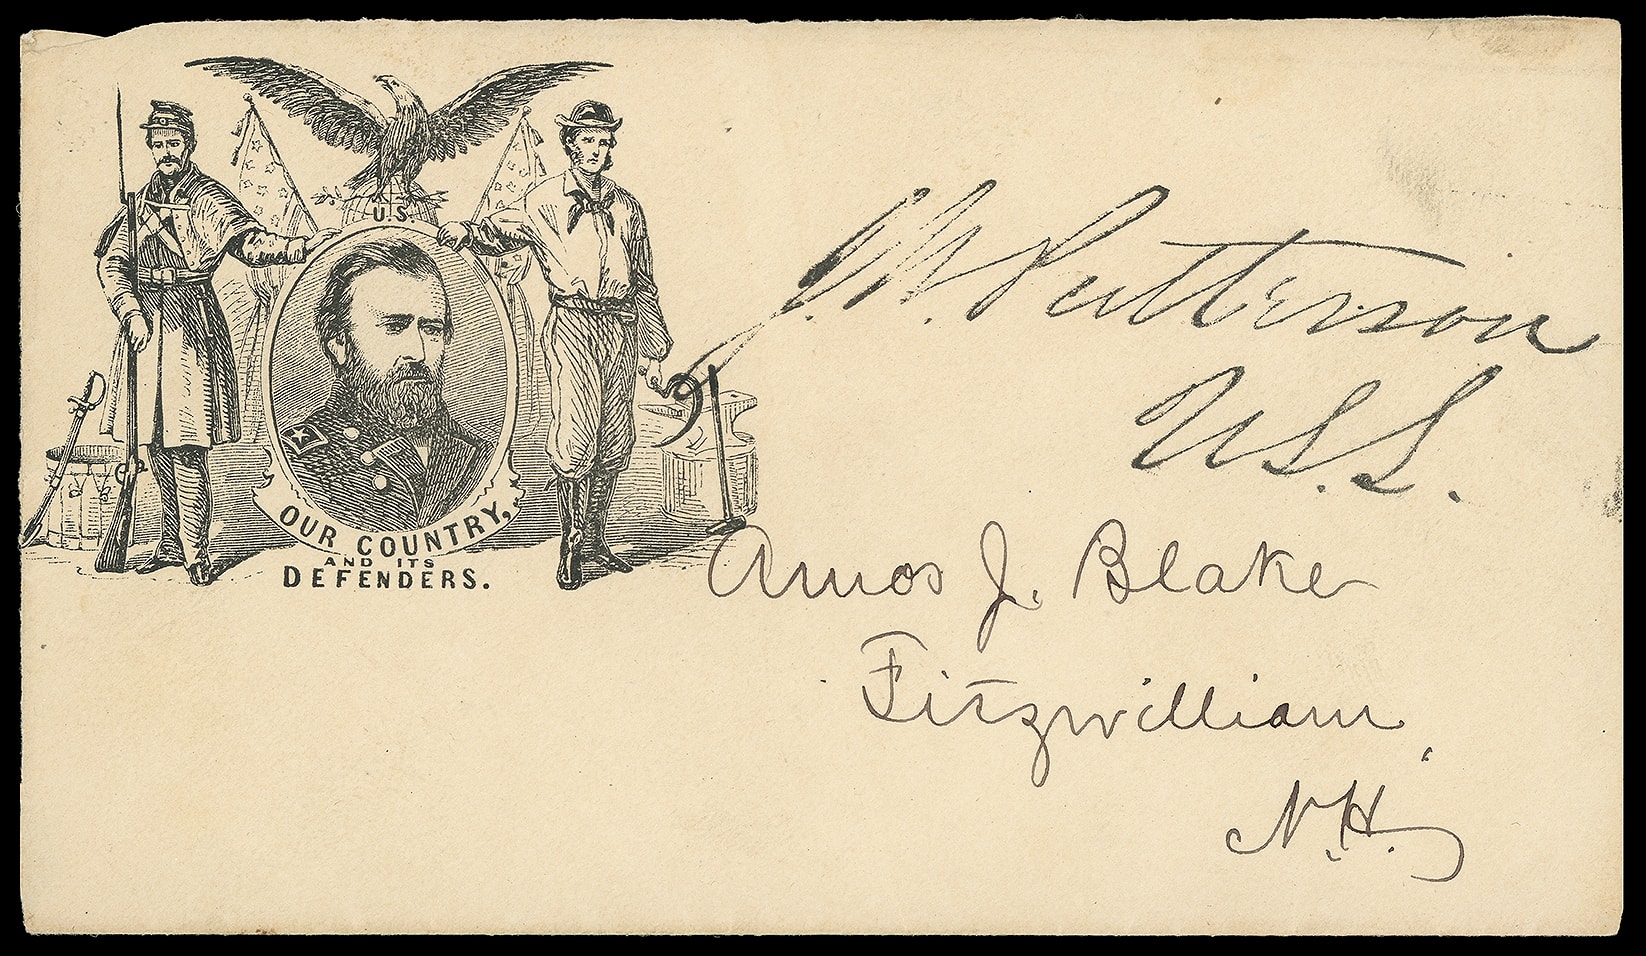 U.S.
OUR COUNTRY,
AND ITS
DEFENDERS.
J. W. Patterson
U.S.S.
Amos J. Blake
Fitzwilliam,
N.H.